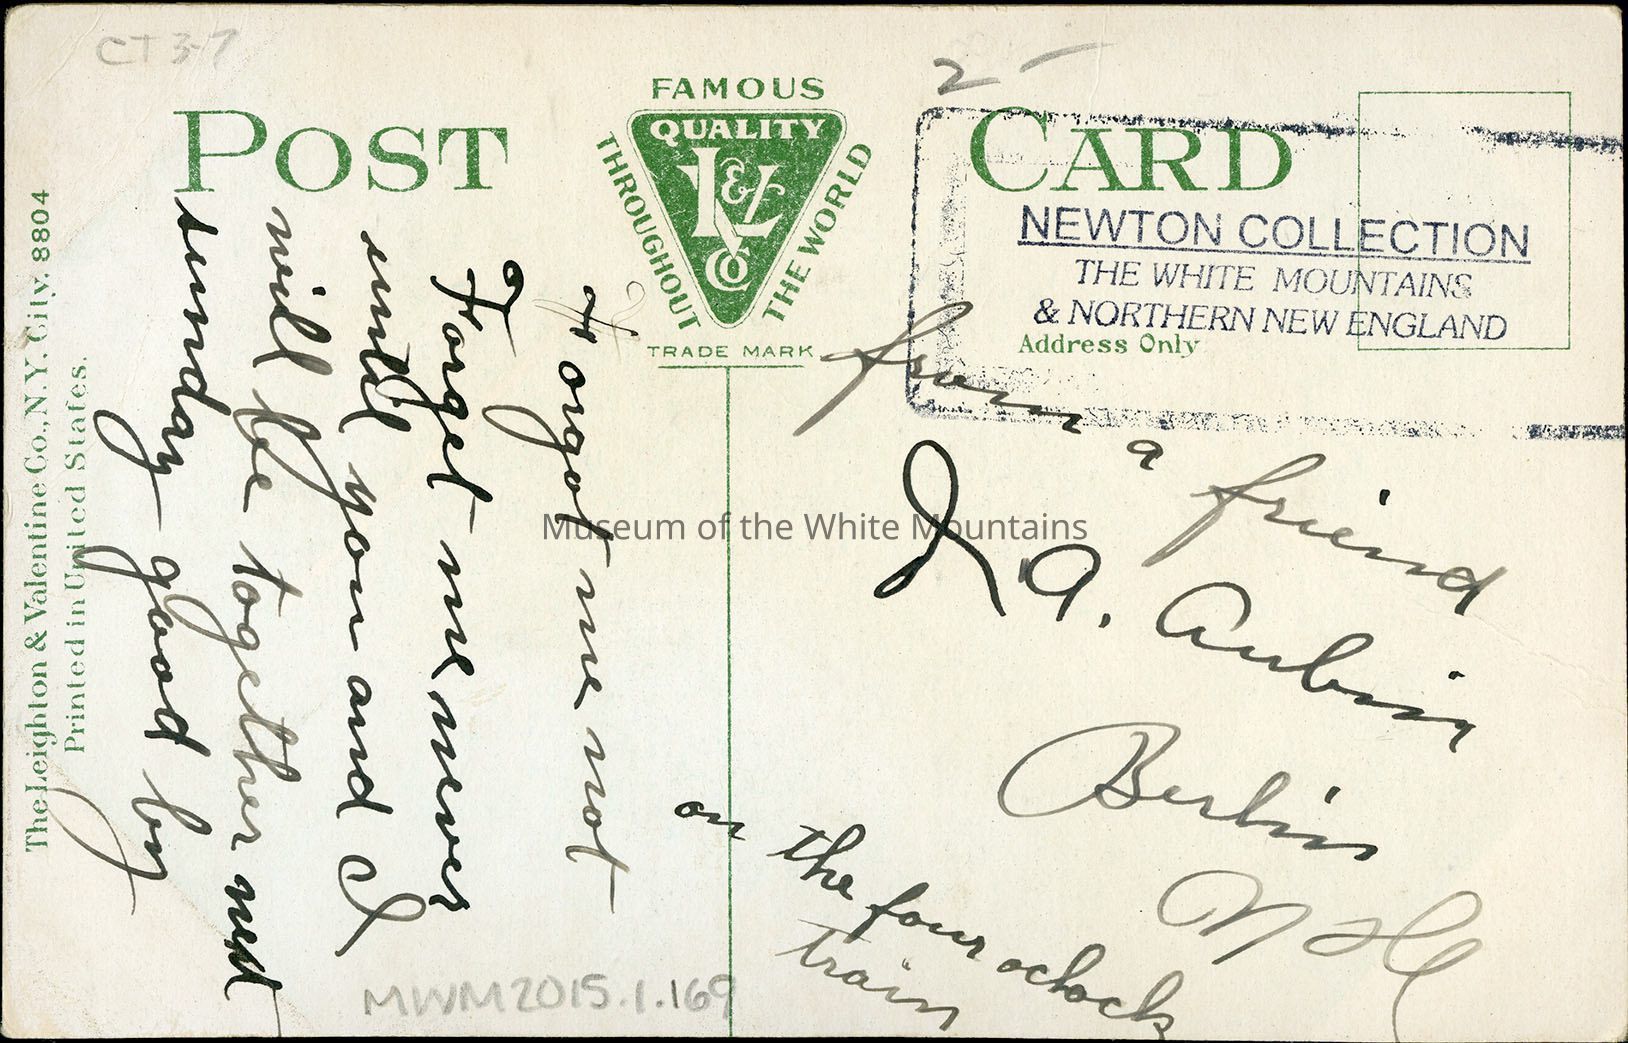 CT 37
2 -
POST CARD
FAMOUS
QUALITY
THROUGHOUT
THE WORLD
L&V
Co
TRADE MARK
NEWTON COLLECTION
THE WHITE MOUNTAINS
& NORTHERN NEW ENGLAND
Address Only
The Leighton & Valentine Co., N.Y. City. 8804
Printed in United States.
Forgot me not
Forget me never
until you and I
will be together next
sunday good by
from a friend
A. Aubin
Berlin
N H
on the four oclock
train
MWM2015.1.169
Museum of the White Mountains